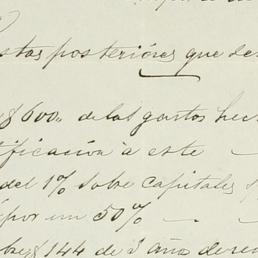 stas posteriores que de
$ 600. de los gastos hec
tificacion a este
del 1% sobre capitales
por un 50%
$ 144 de 3 años de re